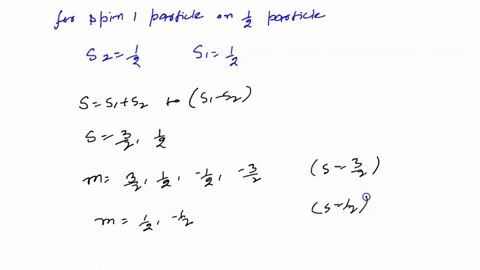 for spin 1 particle on 1/2 particle
S2 = 1/2 S1 = 1/2
S = S1 + S2 to (S1 - S2)
S = 3/2, 1/2
m = 3/2, 1/2, -1/2, -3/2 (S = 3/2)
m = 1/2, -1/2 (S = 1/2)